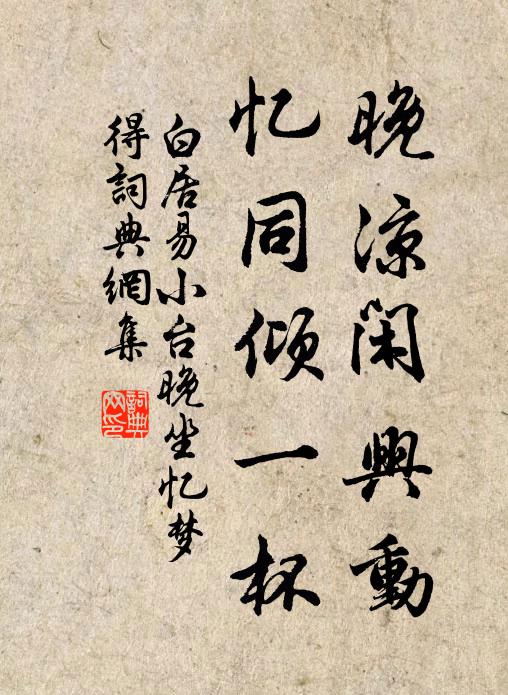 晚凉闲興動
忆同倾一杯
白居易小台晚坐忆梦
得詞典網集
詞典
网印